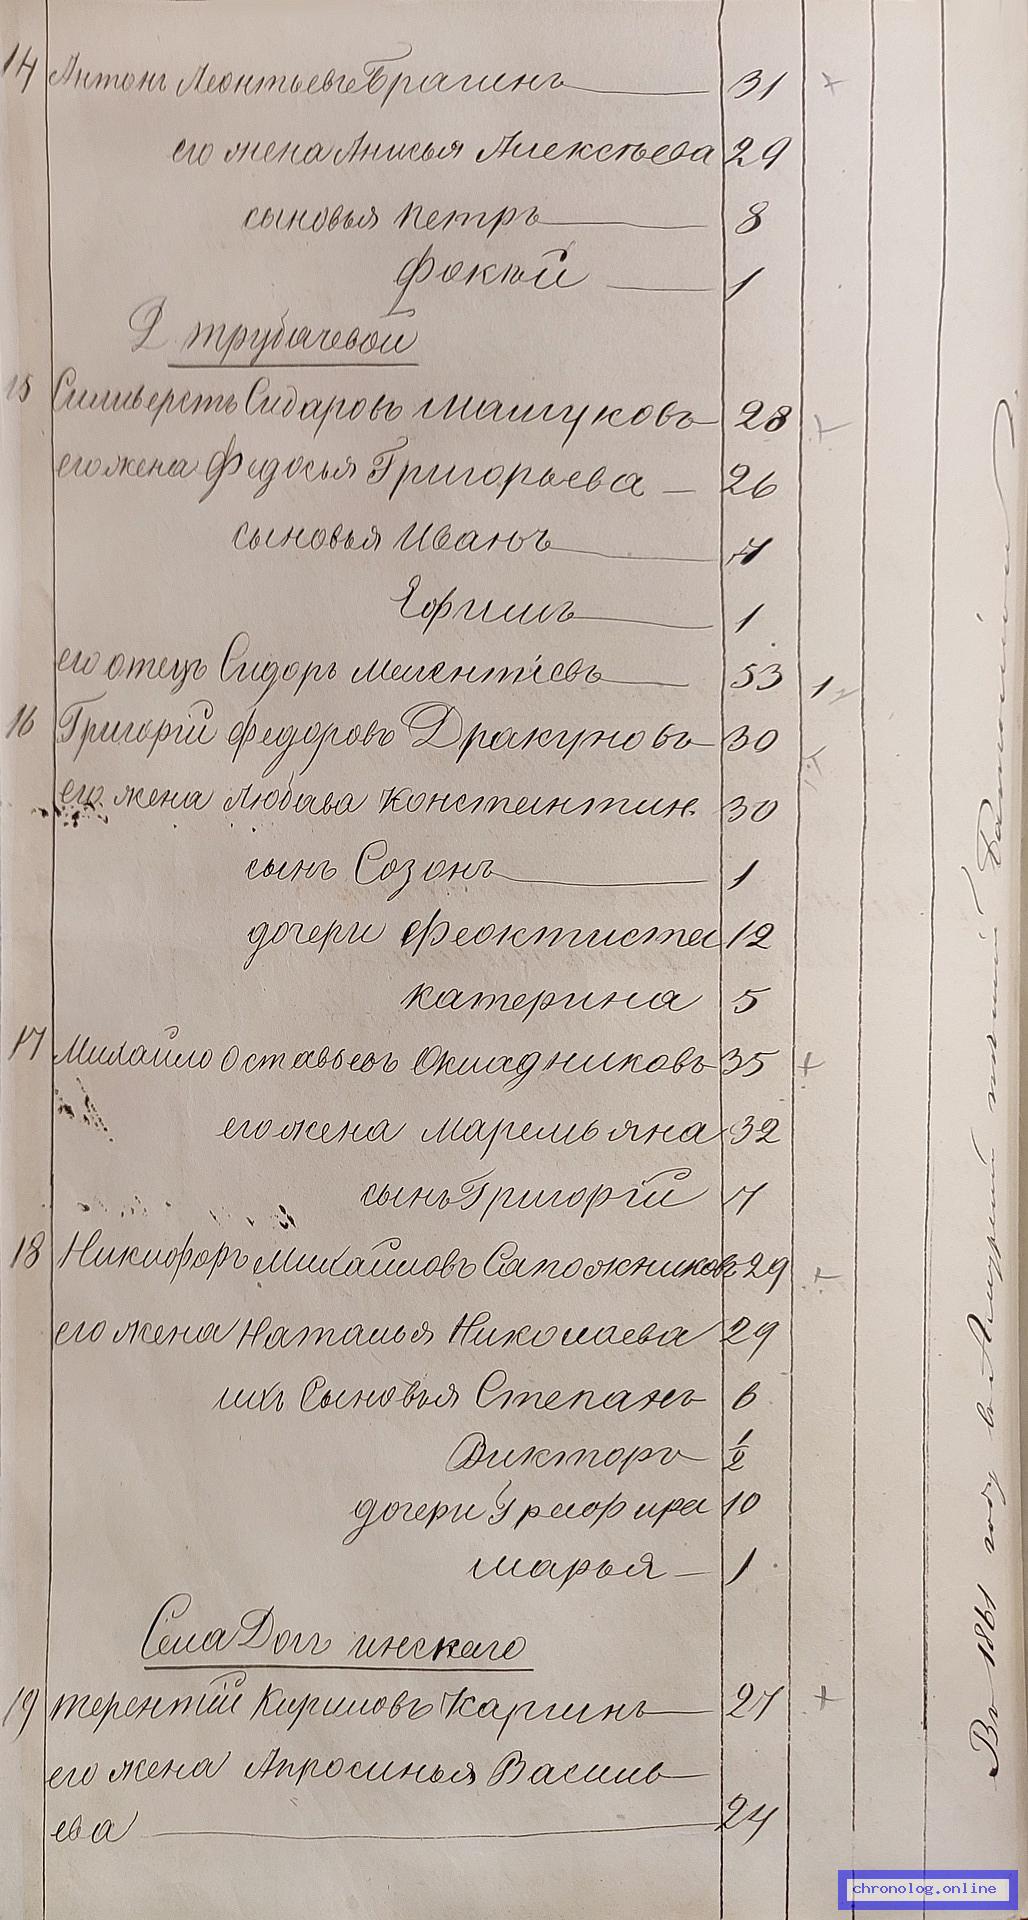 14 Антонъ Леонтьевъ Брагинъ 31 +
его жена Анисья Алексѣева 29
сыновья Петръ 8
Фокѣй 1
Д Трубачевой
15 Силиверстъ Сидаровъ Машуковъ 28 +
его жена Федосья Григорьева 26
сыновья Иванъ 4
Ефимъ 1
его отецъ Сидоръ Мелентіевъ 53 1
16 Григорій Федоровъ Дракуновъ 30 +
его жена Любава Константин. 30
сынъ Созонъ 1
дочери Феоктиста 12
Катерина 5
17 Михайло Оставьевъ Окладниковъ 35 +
его жена Маремьяна 32
сынъ Григорій 7
18 Никифоръ Михайловъ Сапожниковъ 29 +
его жена Наталья Николаева 29
ихъ Сыновья Степанъ 6
Викторъ 1/2
дочери Глафира 10
Марья 1
Села
19 Терентій Кириловъ Каргинъ 27 +
его жена Апросинья Василь
ева 24
Въ 1861 году въ Амурский пеший Баталіонъ
chronolog.online